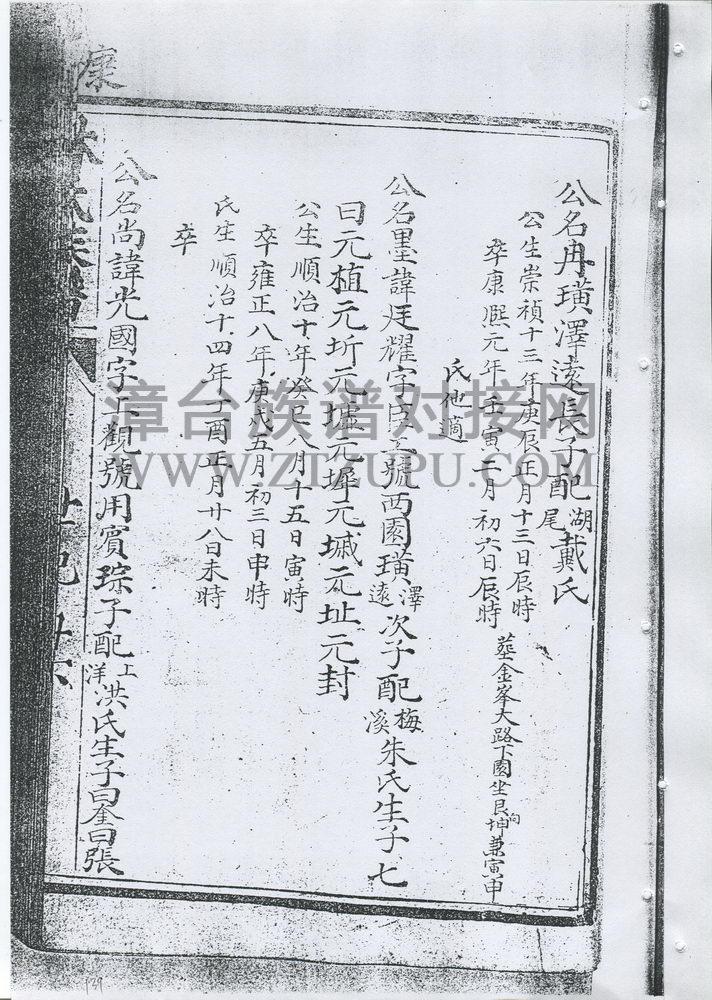 公名冉璜澤遠長子配湖尾戴氏
公生崇禎十三年庚辰正月十三日辰時
卒康熙元年壬寅二月初六日辰時
葬金峯大路下園坐艮向坤兼寅申
氏他適
公名墨諱廷耀字臣號西園璜澤遠次子配梅溪朱氏生子七
曰元植元圻元墟元墀元城元址元封
公生順治十年癸巳八月十五日寅時
卒雍正八年庚戌五月初三日申時
氏生順治十四年丁酉正月廿八日未時
卒
公名尚諱光國字上觀號用賓琮子配上洋洪氏生子曰奎曰張
氏族譜
世紀
康
漳台族谱对接网
WWW.ZTZUPU.COM
129